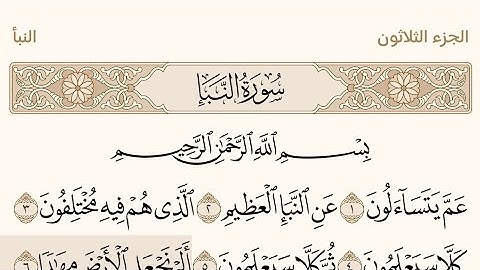 الجزء الثلاثون
النبأ
سُورَةُ النَّبَإِ
بِسْمِ ٱللَّهِ ٱلرَّحْمَٰنِ ٱلرَّحِيمِ
عَمَّ يَتَسَآءَلُونَ ١ عَنِ ٱلنَّبَإِ ٱلْعَظِيمِ ٢ ٱلَّذِى هُمْ فِيهِ مُخْتَلِفُونَ ٣
كَلَّا سَيَعْلَمُونَ ٤ ثُمَّ كَلَّا سَيَعْلَمُونَ ٥ أَلَمْ نَجْعَلِ ٱلْأَرْضَ مِهَٰدًا ٦